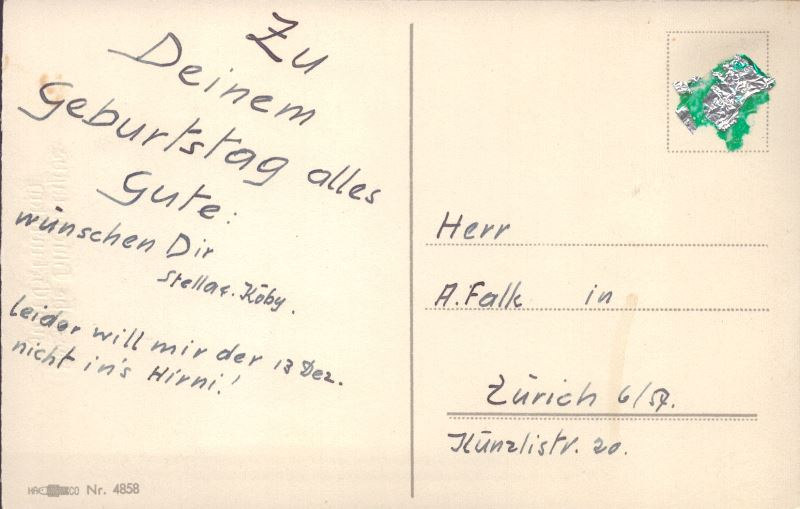 Zu
Deinem
Geburtstag alles
Gute:
wünschen Dir
Stella u. Köby.
Leider will mir der 13 Dez.
nicht in's Hirni!
Nr. 4858
Herr
A. Falk in
Zürich 6/57.
Künzlistr. 20.